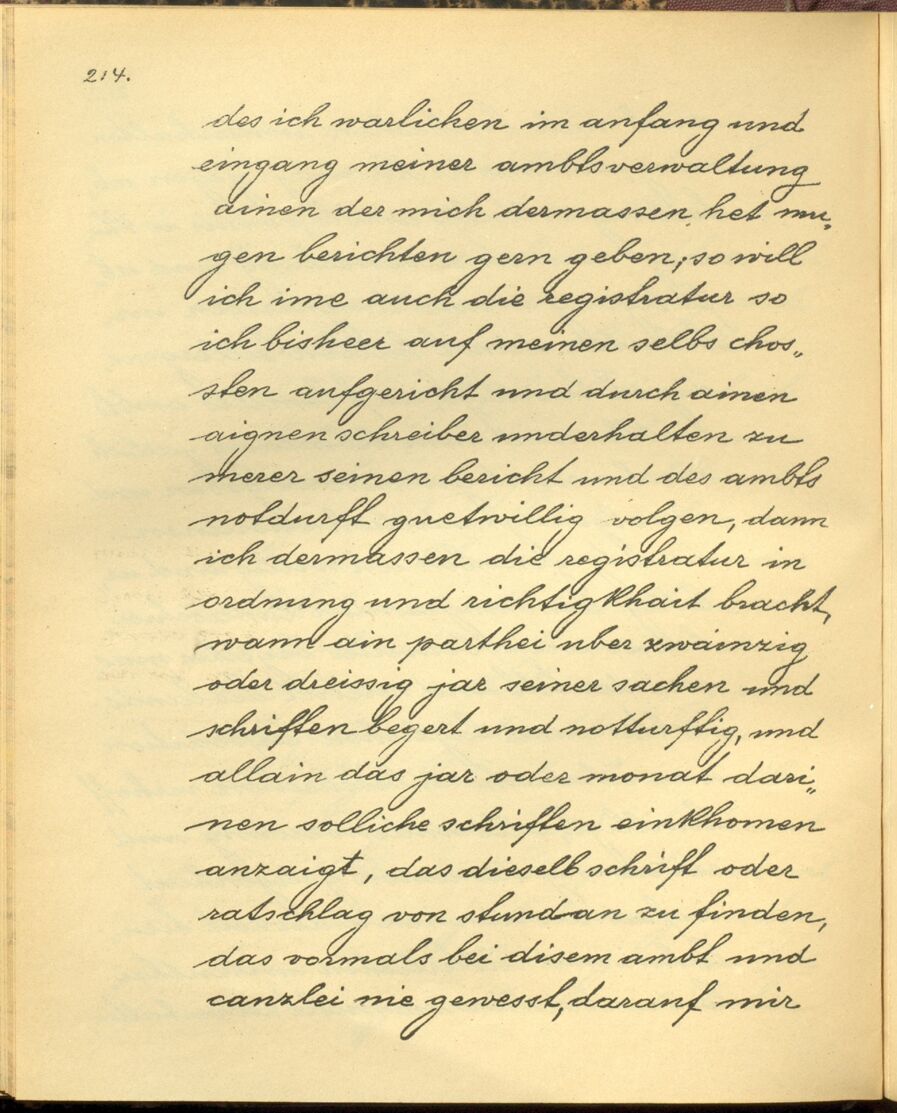 214.
des ich warlichen im anfang und
eingang meiner ambtsverwaltung
ainen der mich dermassen het mu„
gen berichten gern geben; so will
ich ime auch die registratur so
ich bisheer auf meinen selbs chos„
sten aufgericht und durch ainen
aignen schreiber underhalten zu
merer seinen bericht und des ambts
notdurft guetwillig volgen, dann
ich dermassen die registratur in
ordnung und richtigkhait bracht,
wann ain parthei uber zwainzig
oder dreissig jar seiner sachen und
schriften begert und notturftig, und
allain das jar oder monat dari„
nen solliche schriften einkhomen
anzaigt, das dieselb schrift oder
ratschlag von stund an zu finden,
das vormals bei disem ambt und
canzlei nie gewesst, darauf mir